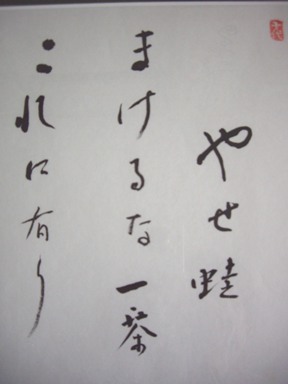 やせ蛙
まけるな一茶
これに有り